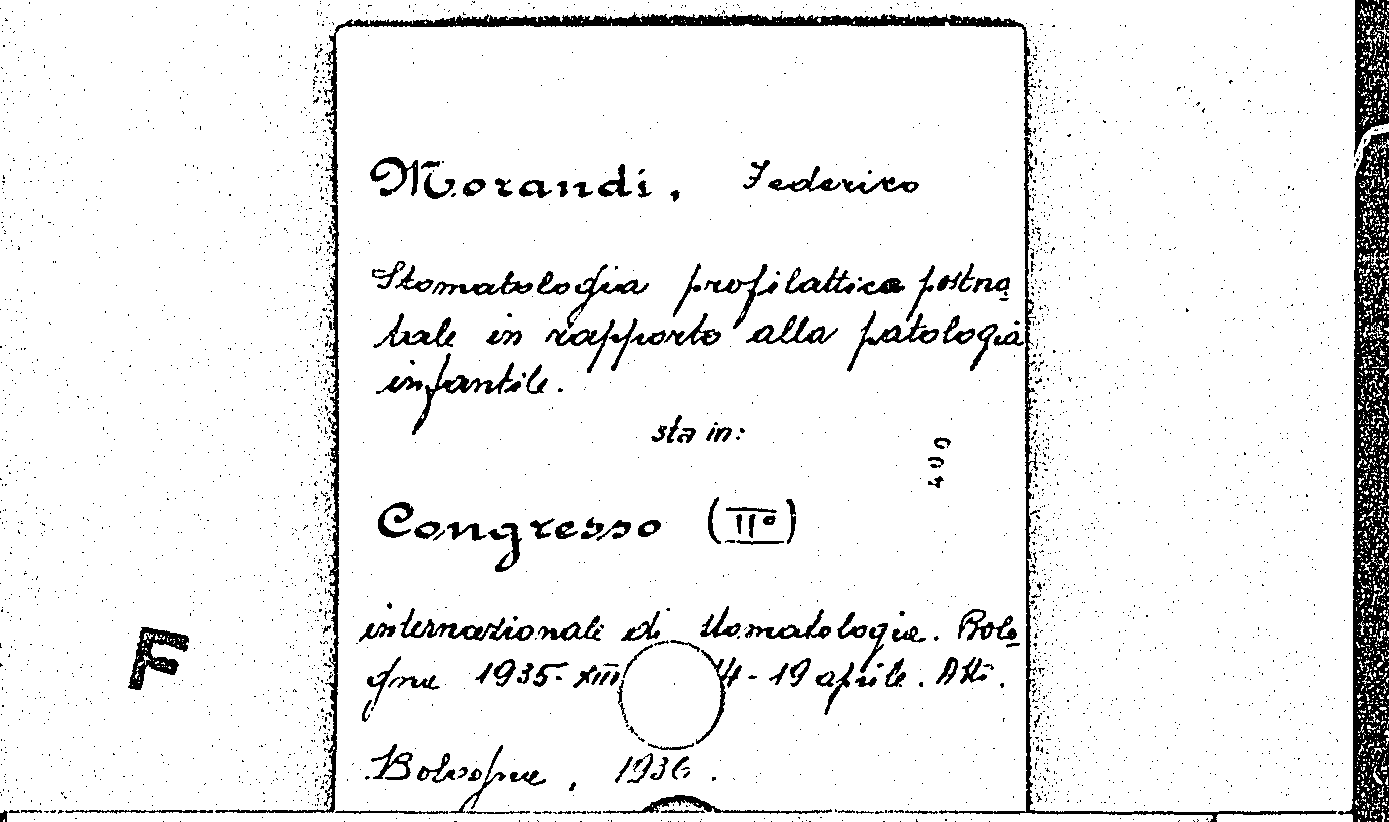 Morandi, Federico
Stomatologia profilattica postna
tale in rapporto alla patologia
infantile.
sta in:
400
Congresso (II°)
internazionale di stomatologia. Bolo
gna 1935-XIII 14-19 aprile. Atti.
Bologna, 1936.
F